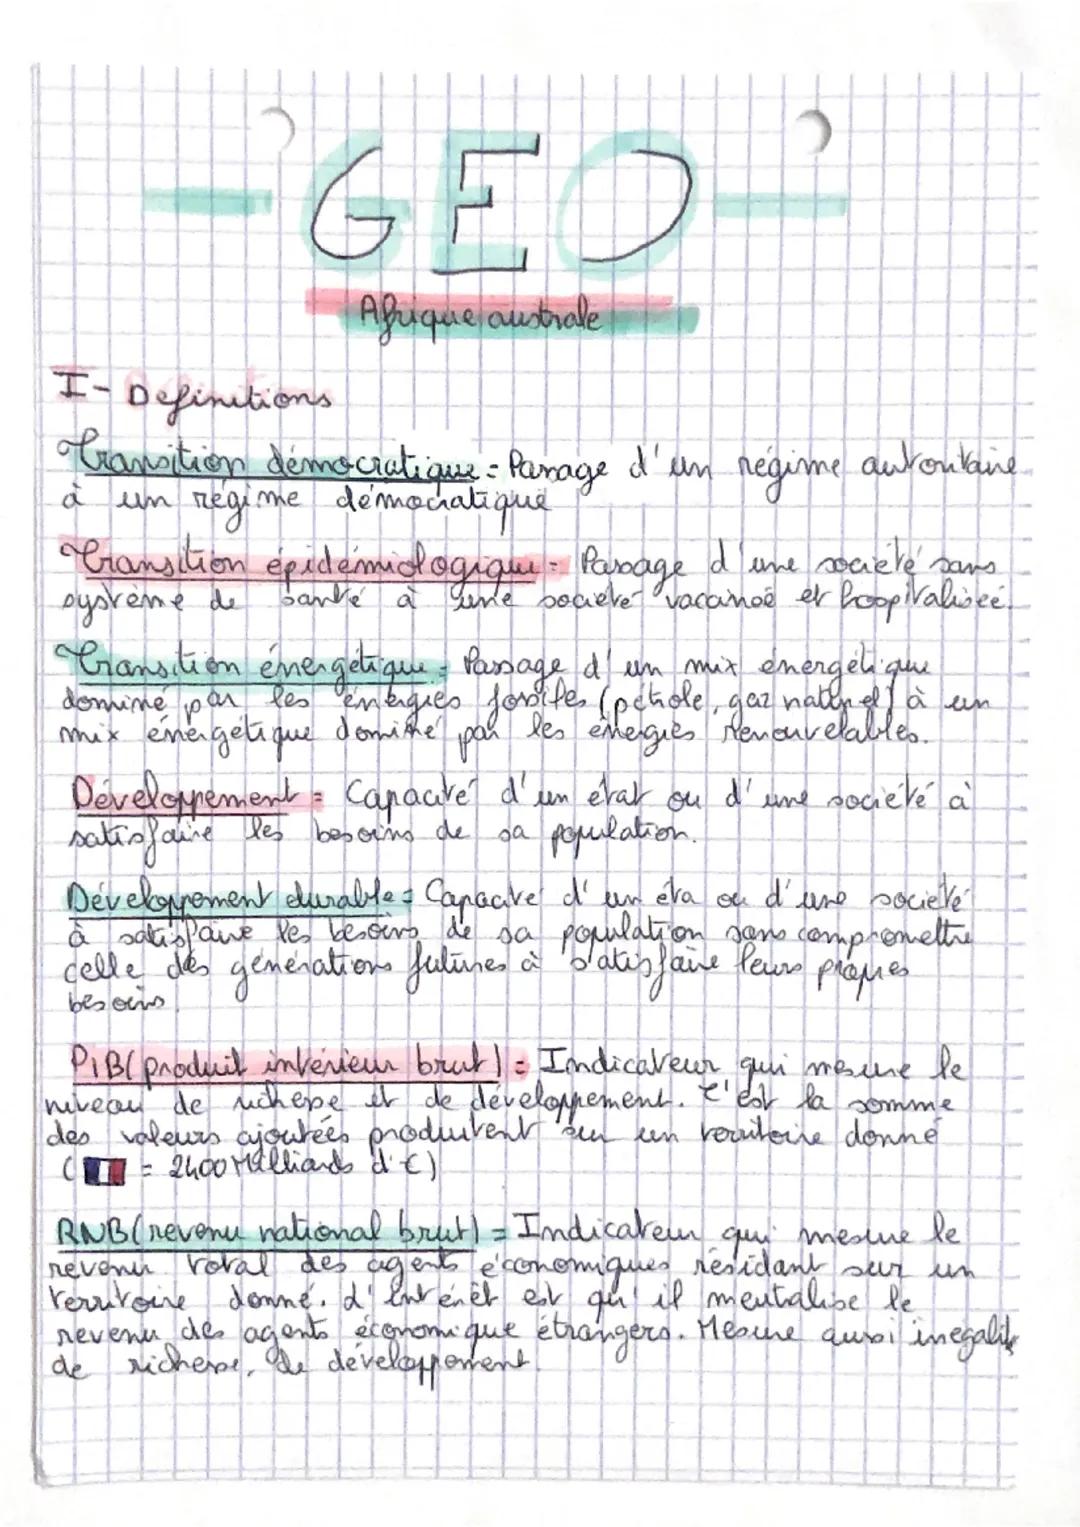 -GEO-
Afrique australe
I- Définitions
Transition démocratique = Passage d'un régime autoritaire
à un régime démocratique
Transition épidémiologique = Passage d'une société sans
système de santé à une société vaccinée et hospitalisée.
Transition énergétique = Passage d'un mix énergétique
dominé par les énergies fossiles (pétrole, gaz naturel) à un
mix énergétique dominé par les énergies renouvelables.
Développement = Capacité d'un état ou d'une société à
satisfaire les besoins de sa population.
Développement durable = Capacité d'un éta ou d'une société
à satisfaire les besoins de sa population sans compromettre
celle des générations futures à satisfaire leurs propres
besoins.
PIB (produit intérieur brut) = Indicateur qui mesure le
niveau de richesse et de développement. C'est la somme
des valeurs ajoutées produitent sur un territoire donné
( = 2400 Milliards d'€)
RNB (revenu national brut) = Indicateur qui mesure le
revenu total des agents économiques résidant sur un
territoire donné. L'intérêt est qu'il neutralise le
revenu des agents économique étrangers. Mesure aussi inégalité
de richesse, de développement.